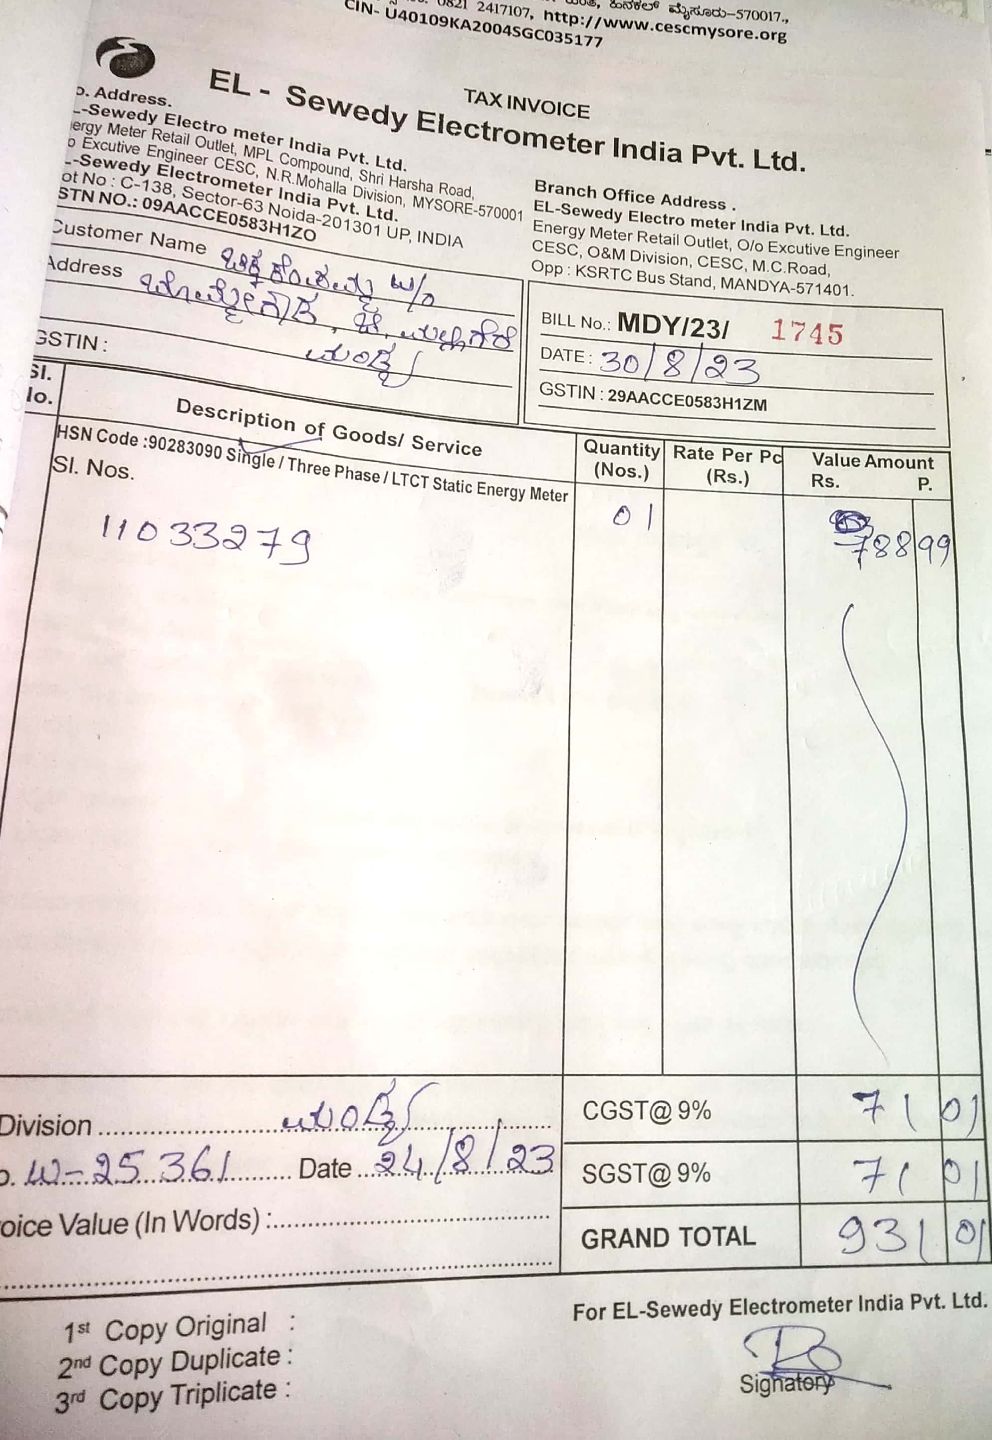 0821 2417107, http://www.cescmysore.org
ಹಿನಕಲ್ ಮೈಸೂರು-570017.,
CIN- U40109KA2004SGC035177
TAX INVOICE
EL - Sewedy Electrometer India Pvt. Ltd.
o. Address.
L-Sewedy Electro meter India Pvt. Ltd.
ergy Meter Retail Outlet, MPL Compound, Shri Harsha Road,
o Excutive Engineer CESC, N.R.Mohalla Division, MYSORE-570001
L-Sewedy Electrometer India Pvt. Ltd.
ot No : C-138, Sector-63 Noida-201301 UP, INDIA
STN NO.: 09AACCE0583H1ZO
Branch Office Address .
EL-Sewedy Electro meter India Pvt. Ltd.
Energy Meter Retail Outlet, O/o Excutive Engineer
CESC, O&M Division, CESC, M.C.Road,
Opp : KSRTC Bus Stand, MANDYA-571401.
Customer Name W/o
Address
ಮಂಡ್ಯ
GSTIN :
BILL No.: MDY/23/ 1745
DATE : 30/8/23
GSTIN : 29AACCE0583H1ZM
Sl. No.
Description of Goods/ Service
Quantity (Nos.)
Rate Per Pc (Rs.)
Value Amount
Rs. P.
HSN Code :90283090 Single / Three Phase / LTCT Static Energy Meter
Sl. Nos.
11033279 01 788 99
Division ಮಂಡ್ಯ
CGST@ 9% 71 01
o. W-25361 Date 24/8/23
SGST@ 9% 71 01
oice Value (In Words) :
GRAND TOTAL 931 01
For EL-Sewedy Electrometer India Pvt. Ltd.
1st Copy Original :
2nd Copy Duplicate :
3rd Copy Triplicate :
Signatory